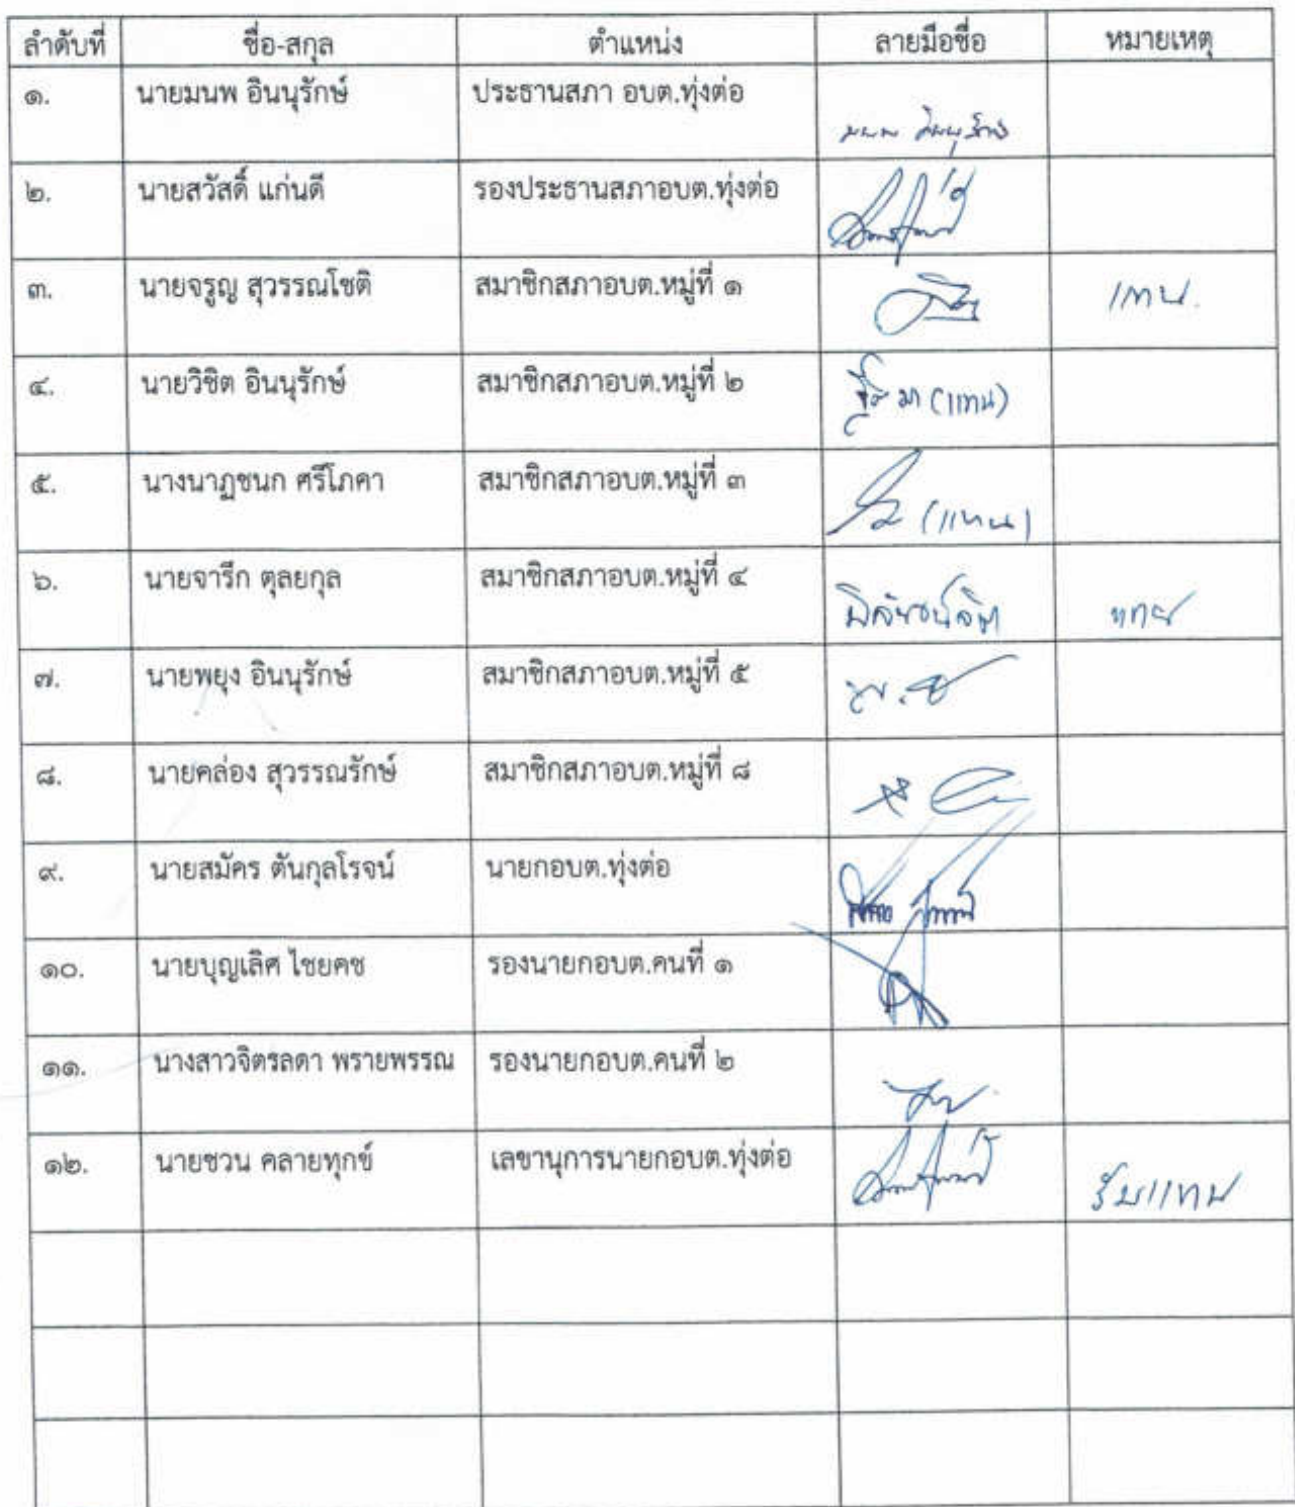 ลำดับที่ ชื่อ-สกุล ตำแหน่ง ลายมือชื่อ หมายเหตุ
๑. นายมนพ อินนุรักษ์ ประธานสภา อบต.ทุ่งต่อ
๒. นายสวัสดิ์ แก่นดี รองประธานสภาอบต.ทุ่งต่อ
๓. นายจรูญ สุวรรณโชติ สมาชิกสภาอบต.หมู่ที่ ๑ แทน.
๔. นายวิชิต อินนุรักษ์ สมาชิกสภาอบต.หมู่ที่ ๒ (แทน)
๕. นางนาฏชนก ศรีโภคา สมาชิกสภาอบต.หมู่ที่ ๓ (แทน)
๖. นายจารึก ตุลยกุล สมาชิกสภาอบต.หมู่ที่ ๔
๗. นายพยุง อินนุรักษ์ สมาชิกสภาอบต.หมู่ที่ ๕
๘. นายคล่อง สุวรรณรักษ์ สมาชิกสภาอบต.หมู่ที่ ๘
๙. นายสมัคร ตันกุลโรจน์ นายกอบต.ทุ่งต่อ
๑๐. นายบุญเลิศ ไชยคช รองนายกอบต.คนที่ ๑
๑๑. นางสาวจิตรลดา พรายพรรณ รองนายกอบต.คนที่ ๒
๑๒. นายชวน คลายทุกข์ เลขานุการนายกอบต.ทุ่งต่อ รับแทน